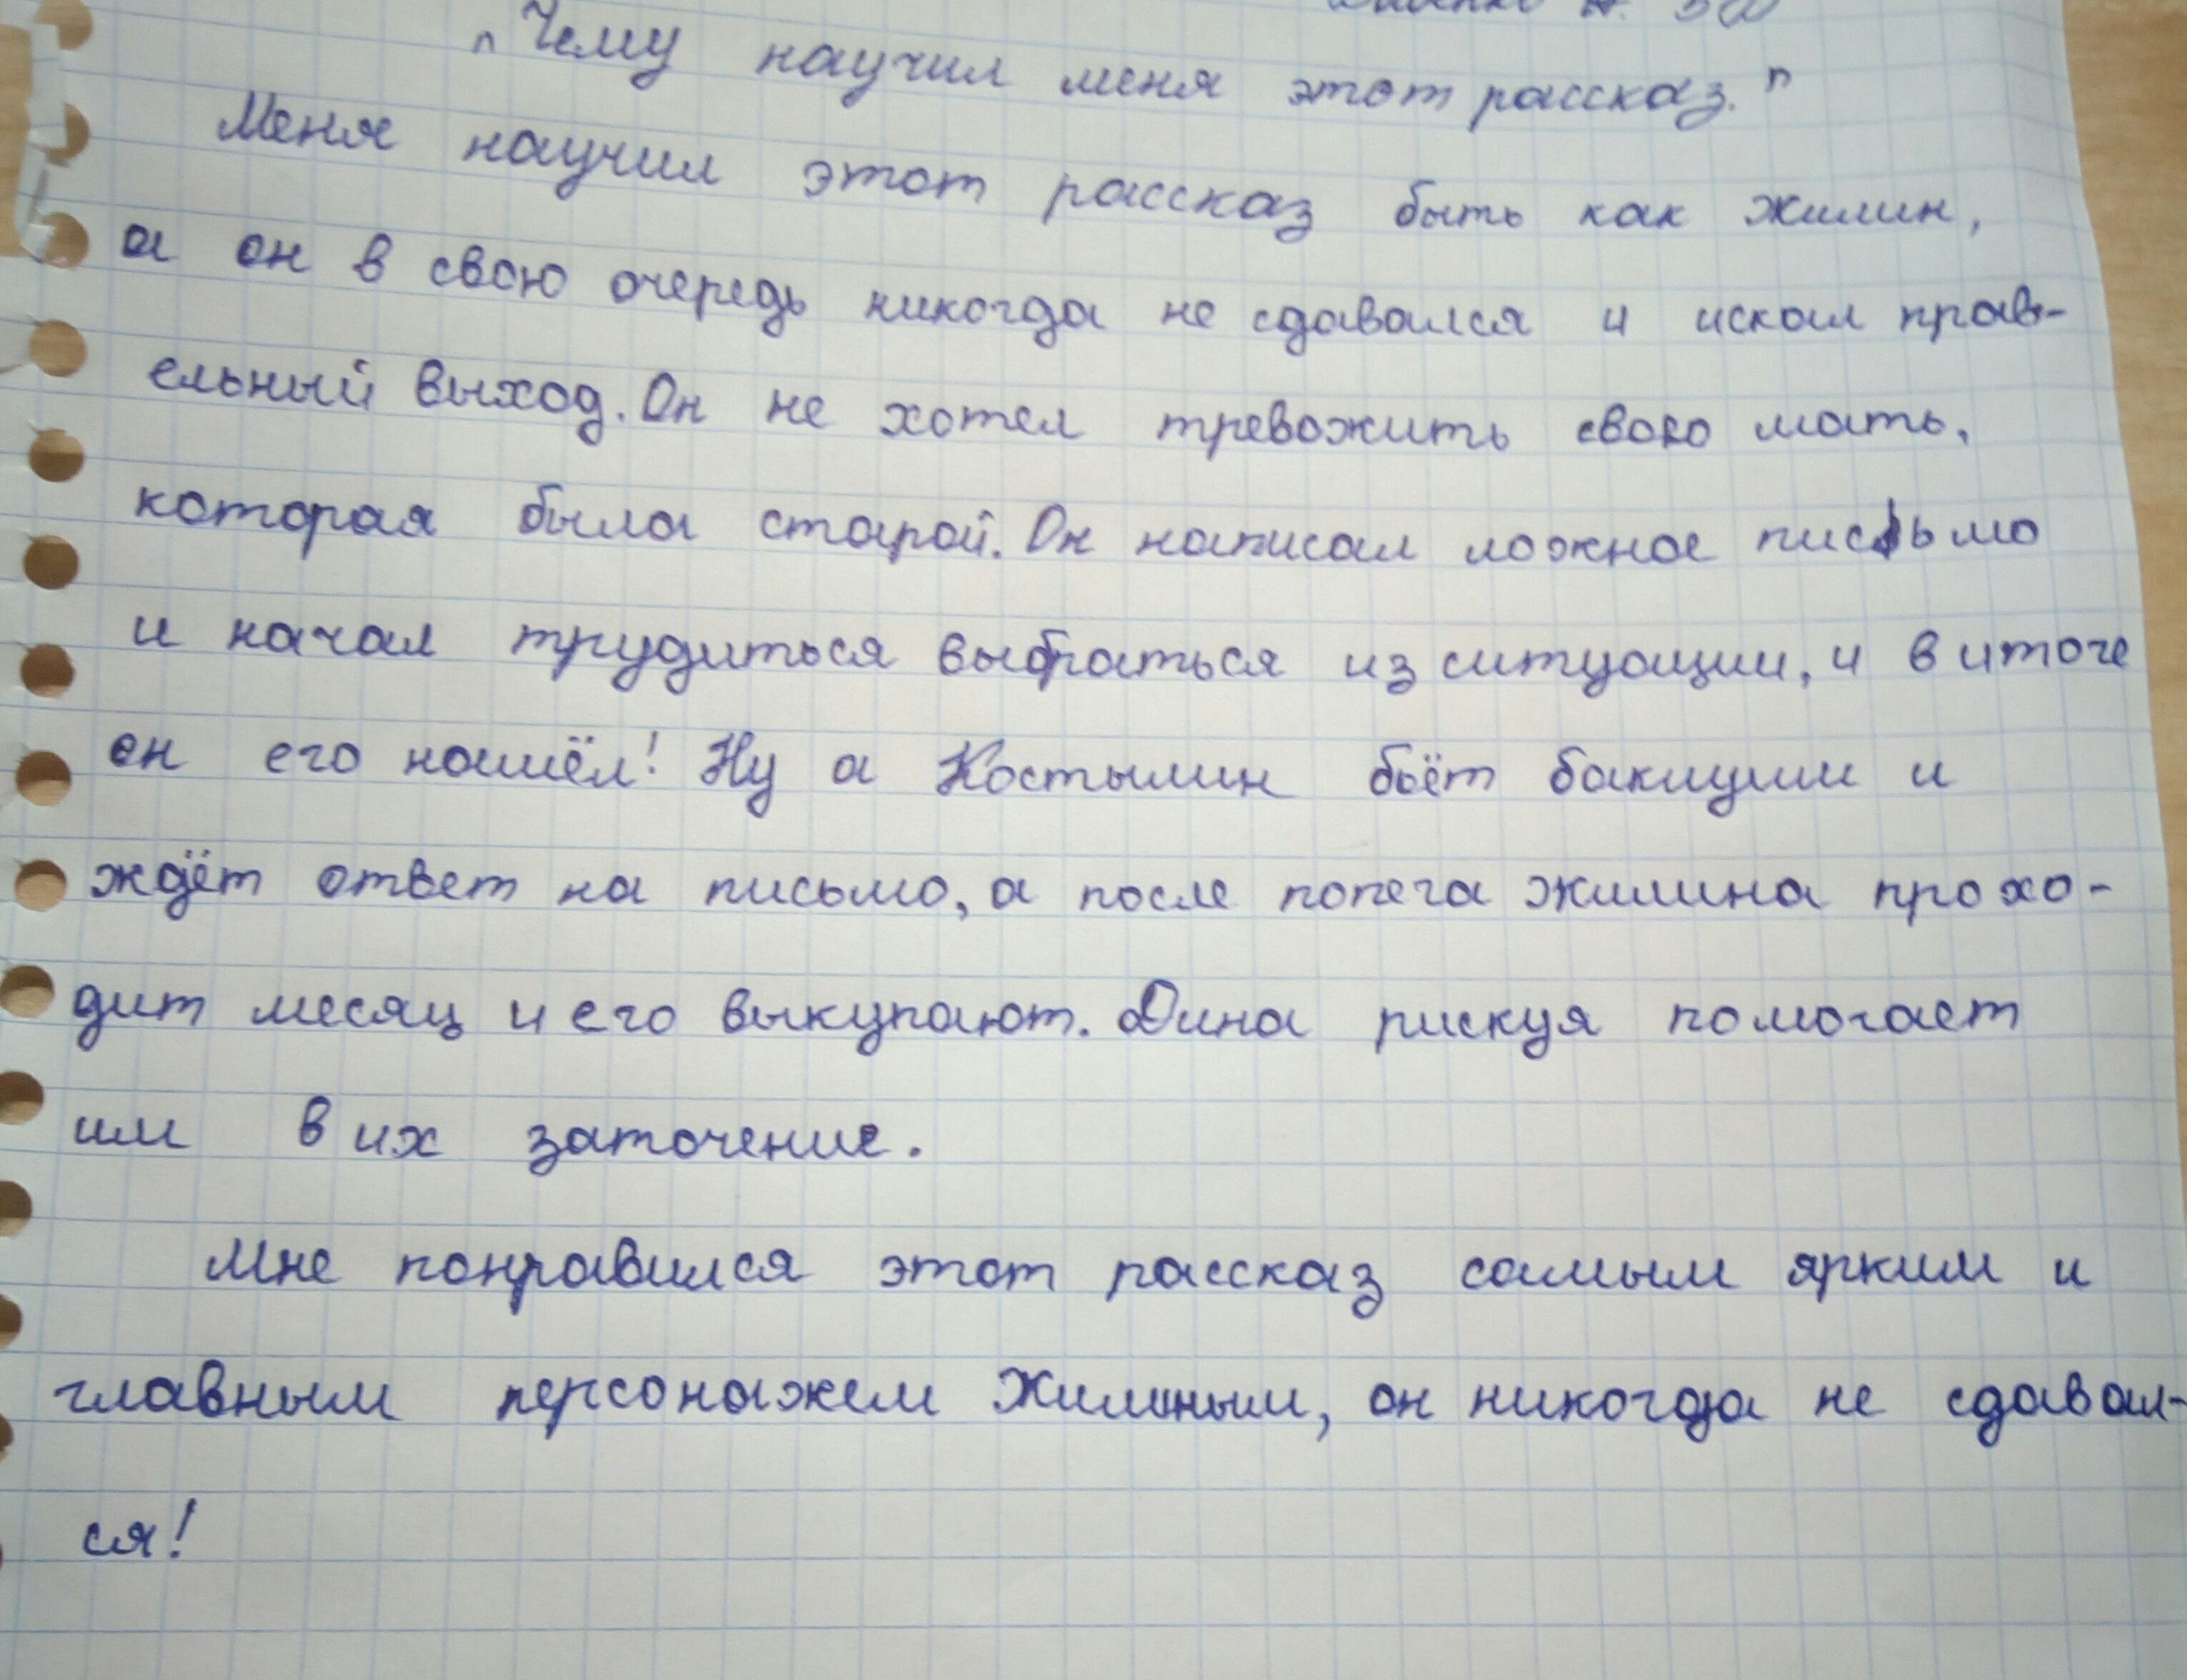 „Чему научил меня этот рассказ."
Меня научил этот рассказ быть как жилин,
а он в свою очередь никогда не сдавался и искал прав-
ельный выход. Он не хотел тревожить свою мать,
которая была старой. Он написал ложное письмо
и начал трудиться выбраться из ситуации, и в итоге
он его нашёл! Ну а Костылин бьёт баклуши и
ждёт ответ на письмо, а после попега жилина прохо-
дит месяц и его выкупают. Дина рискуя помогает
им в их заточение.
Мне понравился этот рассказ самым ярким и
главным персонажем Жилиным, он никогда не сдавал-
ся!